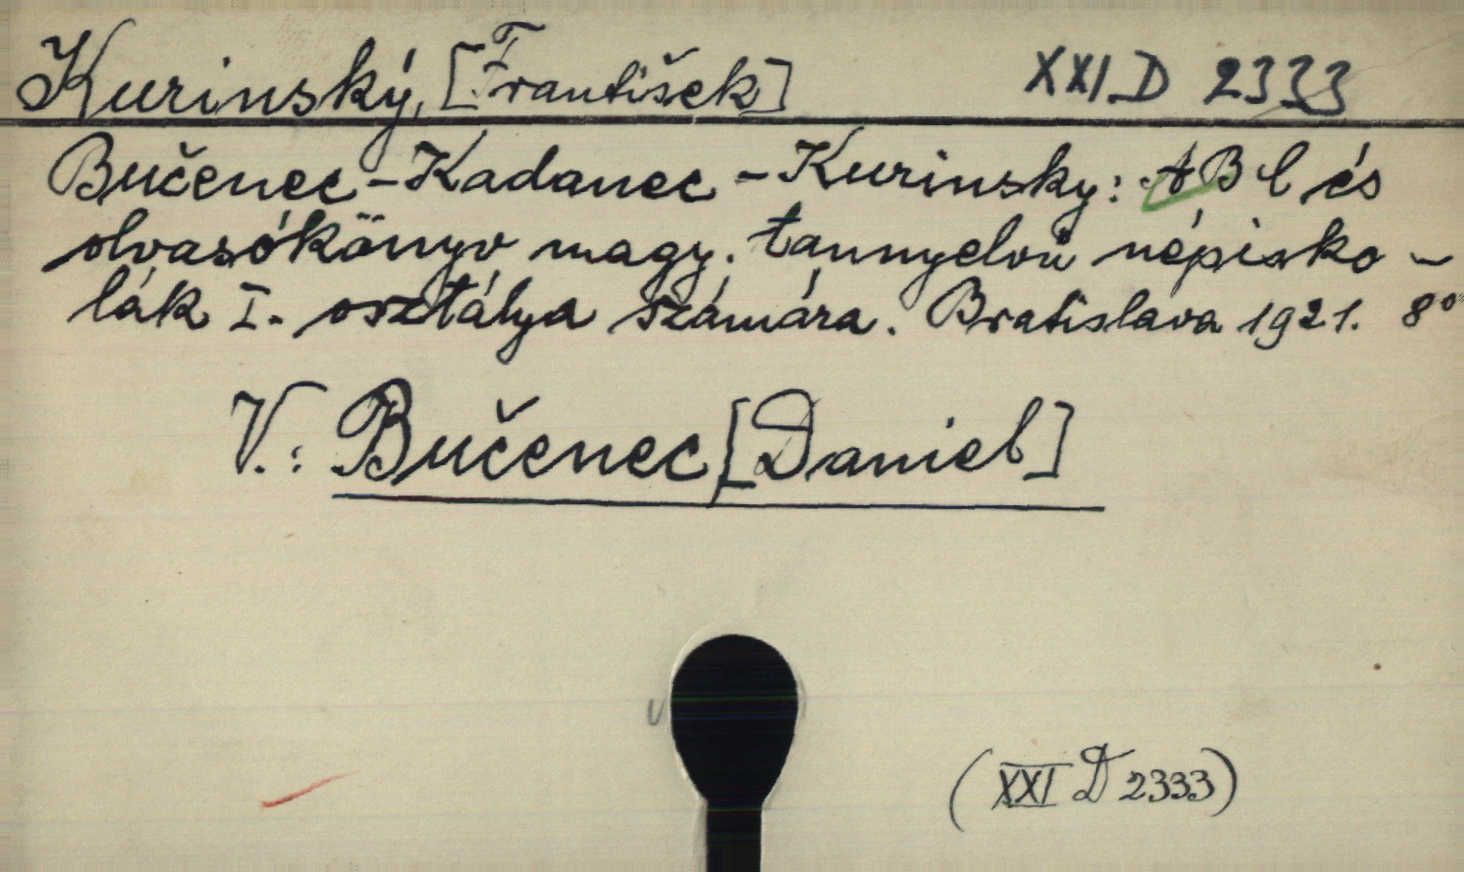 Kurinský, [František] XXI.D 2333
Bučenec - Kadanec - Kurinsky: ABC és
olvasókönyv magy. tannyelvű népisko-
lák I. osztálya számára. Bratislava 1921. 8°
V.: Bučenec [Daniel]
(XXI D 2333)